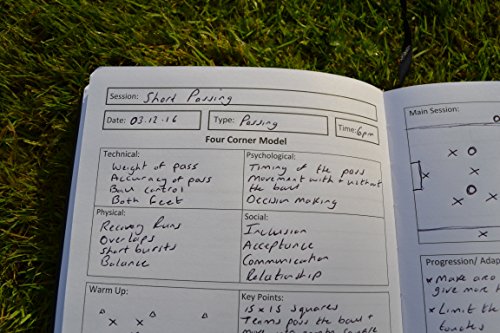 Session: Short Passing
Date: 03.12.16
Type: Passing
Time: 6pm
Four Corner Model
Technical:
Weight of pass
Accuracy of pass
Ball control
Both feet
Psychological:
Timing of the pass
Movement with + without
the ball
Decision making
Physical:
Recovery Runs
Overlaps
Short bursts
Balance
Social:
Inclusion
Acceptance
Communication
Relationship
Warm Up:
Key Points:
15 x 15 squares
Teams pass the ball +
Main Session:
Progression/ Adap
* Make area
give more t
* Limit the
touches